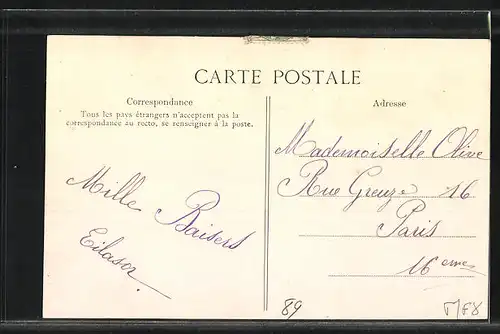 CARTE POSTALE
Correspondance
Tous les pays étrangers n'acceptent pas la
correspondance au recto, se renseigner à la poste.
Mille
Baisers
Adresse
Mademoiselle Olive
Rue Greuze 16
Paris
16 eme
89